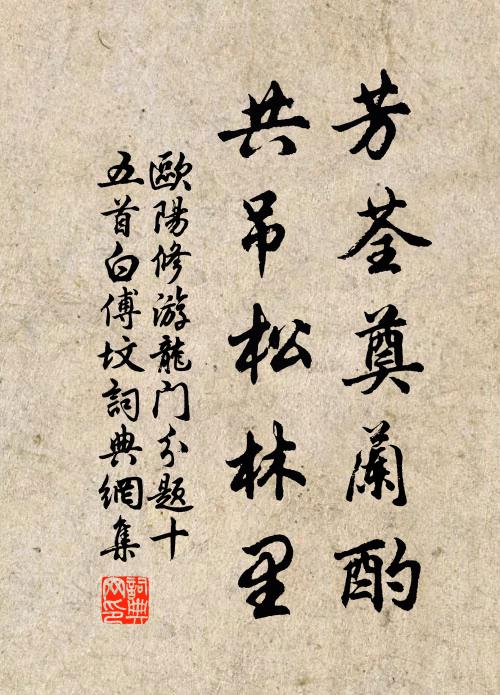 芳荃奠蘭酌
共吊松林里
歐陽修游龍门分題十
五首白傅坟詞典網集
詞典网印